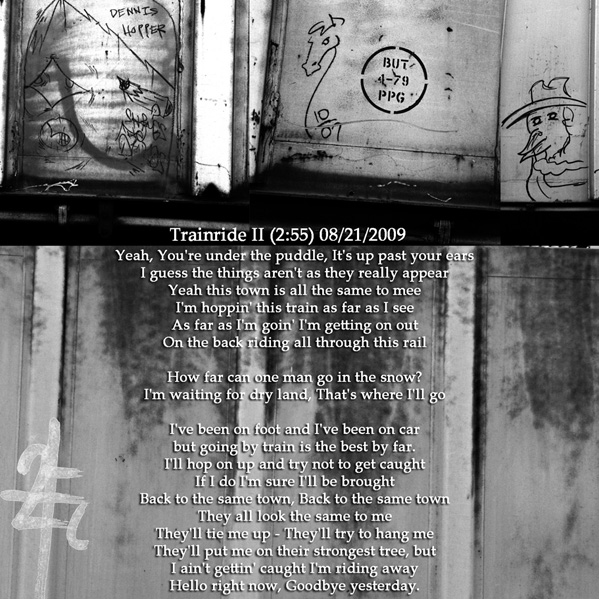 DENNIS
HOPPER
BUT
4-79
PPG
10/07
Trainride II (2:55) 08/21/2009
Yeah, You're under the puddle, It's up past your ears
I guess the things aren't as they really appear
Yeah this town is all the same to mee
I'm hoppin' this train as far as I see
As far as I'm goin' I'm getting on out
On the back riding all through this rail
How far can one man go in the snow?
I'm waiting for dry land, That's where I'll go
I've been on foot and I've been on car
but going by train is the best by far.
I'll hop on up and try not to get caught
If I do I'm sure I'll be brought
Back to the same town, Back to the same town
They all look the same to me
They'll tie me up - They'll try to hang me
They'll put me on their strongest tree, but
I ain't gettin' caught I'm riding away
Hello right now, Goodbye yesterday.